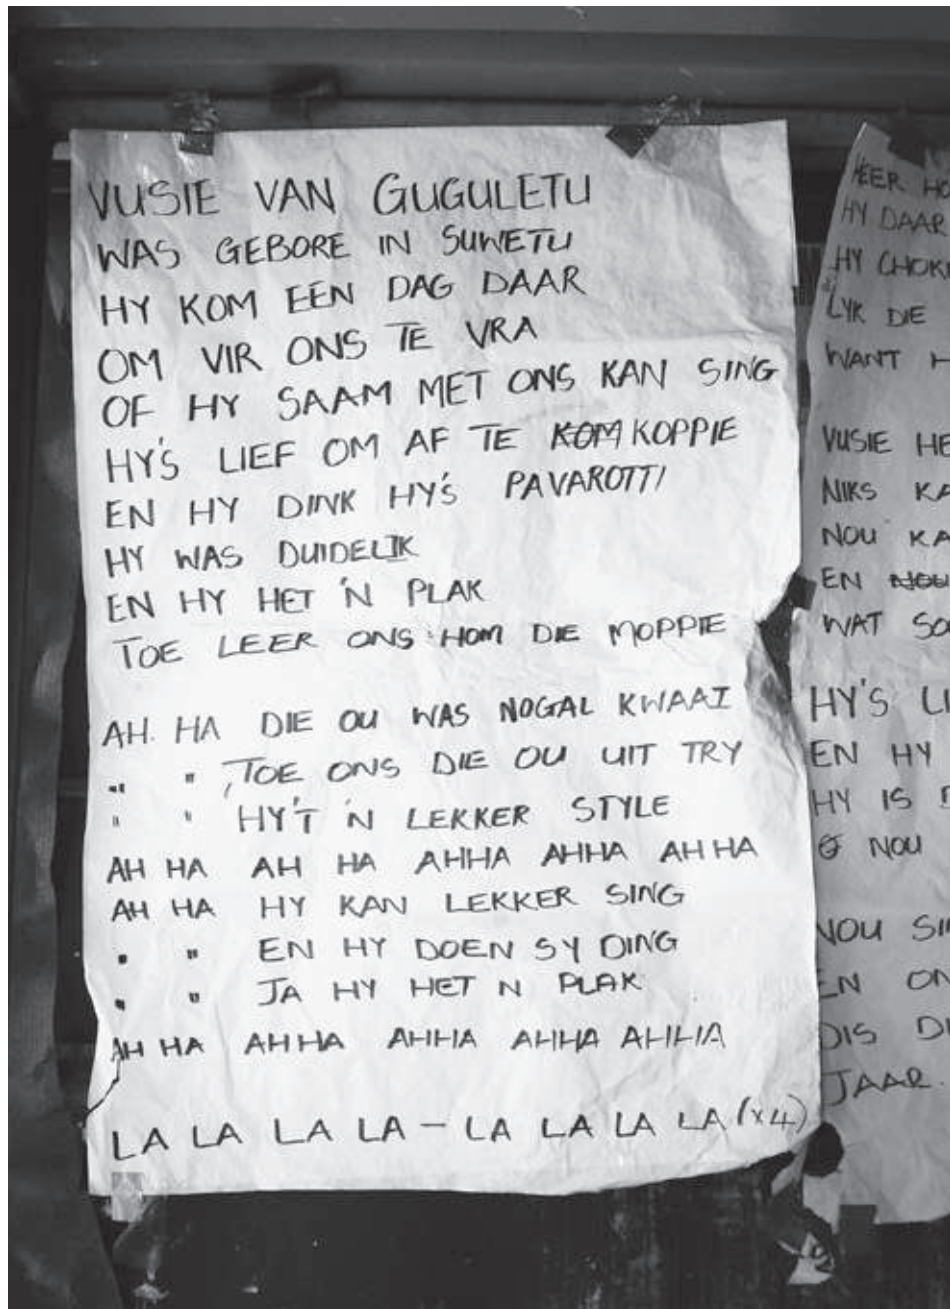 VUSIE VAN GUGULETU
WAS GEBORE IN SUWETU
HY KOM EEN DAG DAAR
OM VIR ONS TE VRA
OF HY SAAM MET ONS KAN SING
HY'S LIEF OM AF TE KOM KOPPIE
EN HY DINK HY'S PAVAROTTI
HY WAS DUIDELIK
EN HY HET 'N PLAK
TOE LEER ONS HOM DIE MOPPIE
AH. HA DIE OU WAS NOGAL KWAAI
" " TOE ONS DIE OU UIT TRY
" " HY'T 'N LEKKER STYLE
AH HA AH HA AHHA AHHA AH HA
AH HA HY KAN LEKKER SING
" " EN HY DOEN SY DING
" " JA HY HET N PLAK
AH HA AHHA AHHA AHHA AHHA
LA LA LA LA - LA LA LA LA (x4)
HEER
HY DAAR
HY
LYK DIE
WANT
VUSIE
NIKS
NOU
EN
WAT
HY'S
EN HY
HY IS
NOU
NOU
EN
DIS
JAAR.